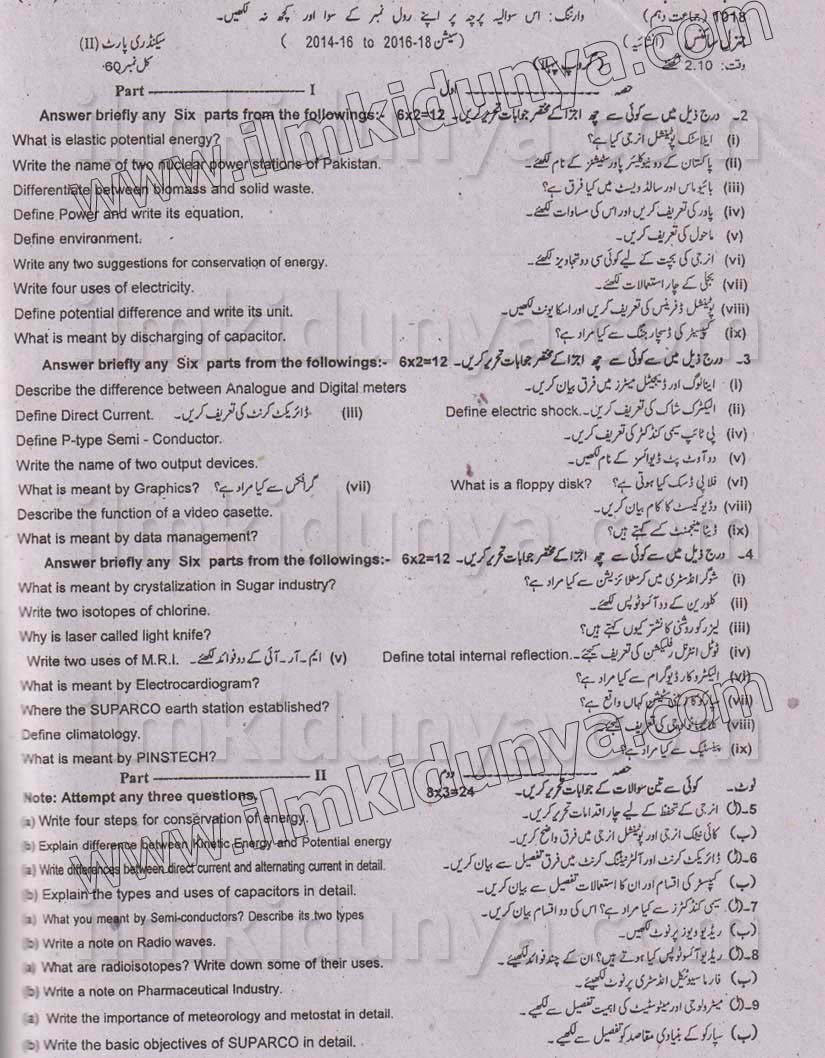 1018 (جماعت دہم) وارننگ: اس سوالیہ پرچہ پر اپنے رول نمبر کے سوا اور کچھ نہ لکھیں۔
جنرل سائنس (انشائیہ) (سیشن 2014-16 to 2016-18) سیکنڈری پارٹ (II)
وقت: 2.10 گھنٹے (گروپ پہلا) کل نمبر 60
Part I حصہ اول
Answer briefly any Six parts from the followings:- 6x2=12 2۔ درج ذیل میں سے کوئی سے چھ اجزا کے مختصر جوابات تحریر کریں۔
What is elastic potential energy? (i) ایلاسٹک پوٹینشل انرجی کیا ہے؟
Write the name of two nuclear power stations of Pakistan. (ii) پاکستان کے دو نیوکلیئر پاور سٹیشنز کے نام لکھئے۔
Differentiate between biomass and solid waste. (iii) بائیوماس اور سالڈ ویسٹ میں کیا فرق ہے؟
Define Power and write its equation. (iv) پاور کی تعریف کریں اور اس کی مساوات لکھئے۔
Define environment. (v) ماحول کی تعریف کریں۔
Write any two suggestions for conservation of energy. (vi) انرجی کی بچت کے لیے کوئی سی دو تجاویز لکھئے۔
Write four uses of electricity. (vii) بجلی کے چار استعمالات لکھئے۔
Define potential difference and write its unit. (viii) پوٹینشل ڈفرینس کی تعریف کریں اور اسکا یونٹ لکھیں۔
What is meant by discharging of capacitor. (ix) کپیسٹر کی ڈسچارجنگ سے کیا مراد ہے؟
Answer briefly any Six parts from the followings:- 6x2=12 3۔ درج ذیل میں سے کوئی سے چھ اجزا کے مختصر جوابات تحریر کریں۔
Describe the difference between Analogue and Digital meters (i) اینالوگ اور ڈیجیٹل میٹرز میں فرق بیان کریں۔
Define Direct Current. ڈائریکٹ کرنٹ کی تعریف کریں۔ (iii) Define electric shock. الیکٹرک شاک کی تعریف کریں۔ (ii)
Define P-type Semi - Conductor. (iv) پی ٹائپ سیمی کنڈکٹر کی تعریف کریں۔
Write the name of two output devices. (v) دو آؤٹ پٹ ڈیوائسز کے نام لکھیں۔
What is meant by Graphics? گرافکس سے کیا مراد ہے؟ (vii) What is a floppy disk? فلاپی ڈسک کیا ہوتی ہے؟ (vi)
Describe the function of a video casette. (viii) وڈیو کیسٹ کا کام بیان کریں۔
What is meant by data management? (ix) ڈیٹا مینجمنٹ کسے کہتے ہیں؟
Answer briefly any Six parts from the followings:- 6x2=12 4۔ درج ذیل میں سے کوئی سے چھ اجزا کے مختصر جوابات تحریر کریں۔
What is meant by crystalization in Sugar industry? (i) شوگر انڈسٹری میں کرسٹلائزیشن سے کیا مراد ہے؟
Write two isotopes of chlorine. (ii) کلورین کے دو آئسوٹوپس لکھئے۔
Why is laser called light knife? (iii) لیزر کو روشنی کا نشتر کیوں کہتے ہیں؟
Write two uses of M.R.I. ایم۔آر۔آئی کے دو فوائد لکھئے۔ (v) Define total internal reflection. ٹوٹل انٹرنل رفلیکشن کی تعریف کیجئے۔ (iv)
What is meant by Electrocardiogram? (vi) الیکٹروکارڈیوگرام سے کیا مراد ہے؟
Where the SUPARCO earth station established? (vii) سپارکو کا زمینی سٹیشن کہاں واقع ہے؟
Define climatology. (viii) کی تعریف کیجئے۔
What is meant by PINSTECH? (ix) پنسٹیک سے کیا مراد ہے؟
Part II حصہ دوم
Note: Attempt any three questions. 8x3=24 نوٹ۔ کوئی سے تین سوالات کے جوابات تحریر کریں۔
a) Write four steps for conservation of energy. 5۔(ا) انرجی کے تحفظ کے لیے چار اقدامات تحریر کریں۔
b) Explain difference between Kinetic Energy and Potential energy (ب) کائی نیٹک انرجی اور پوٹینشل انرجی میں فرق واضح کریں۔
a) Write differences between direct current and alternating current in detail. 6۔(ا) ڈائریکٹ کرنٹ اور آلٹرنیٹنگ کرنٹ میں فرق تفصیل سے بیان کریں۔
b) Explain the types and uses of capacitors in detail. (ب) کپیسٹر کی اقسام اور ان کا استعمالات تفصیل سے بیان کریں۔
a) What you meant by Semi-conductors? Describe its two types 7۔(ا) سیمی کنڈکٹرز سے کیا مراد ہے؟ اس کی دو اقسام بیان کریں۔
b) Write a note on Radio waves. (ب) ریڈیو ویوز پر نوٹ لکھیں۔
a) What are radioisotopes? Write down some of their uses. 8۔(ا) ریڈیو آئسوٹوپس کیا ہوتے ہیں؟ ان کے چند فوائد لکھیئے۔
b) Write a note on Pharmaceutical Industry. (ب) فارماسیوٹیکل انڈسٹری پر نوٹ لکھیئے۔
a) Write the importance of meteorology and metostat in detail. 9۔(ا) میٹرولوجی اور میٹوسٹیٹ کی اہمیت تفصیل سے لکھیے۔
b) Write the basic objectives of SUPARCO in detail. (ب) سپارکو کے بنیادی مقاصد کو تفصیل سے لکھیے۔
www.ilmkidunya.com
ilmkidunya.com